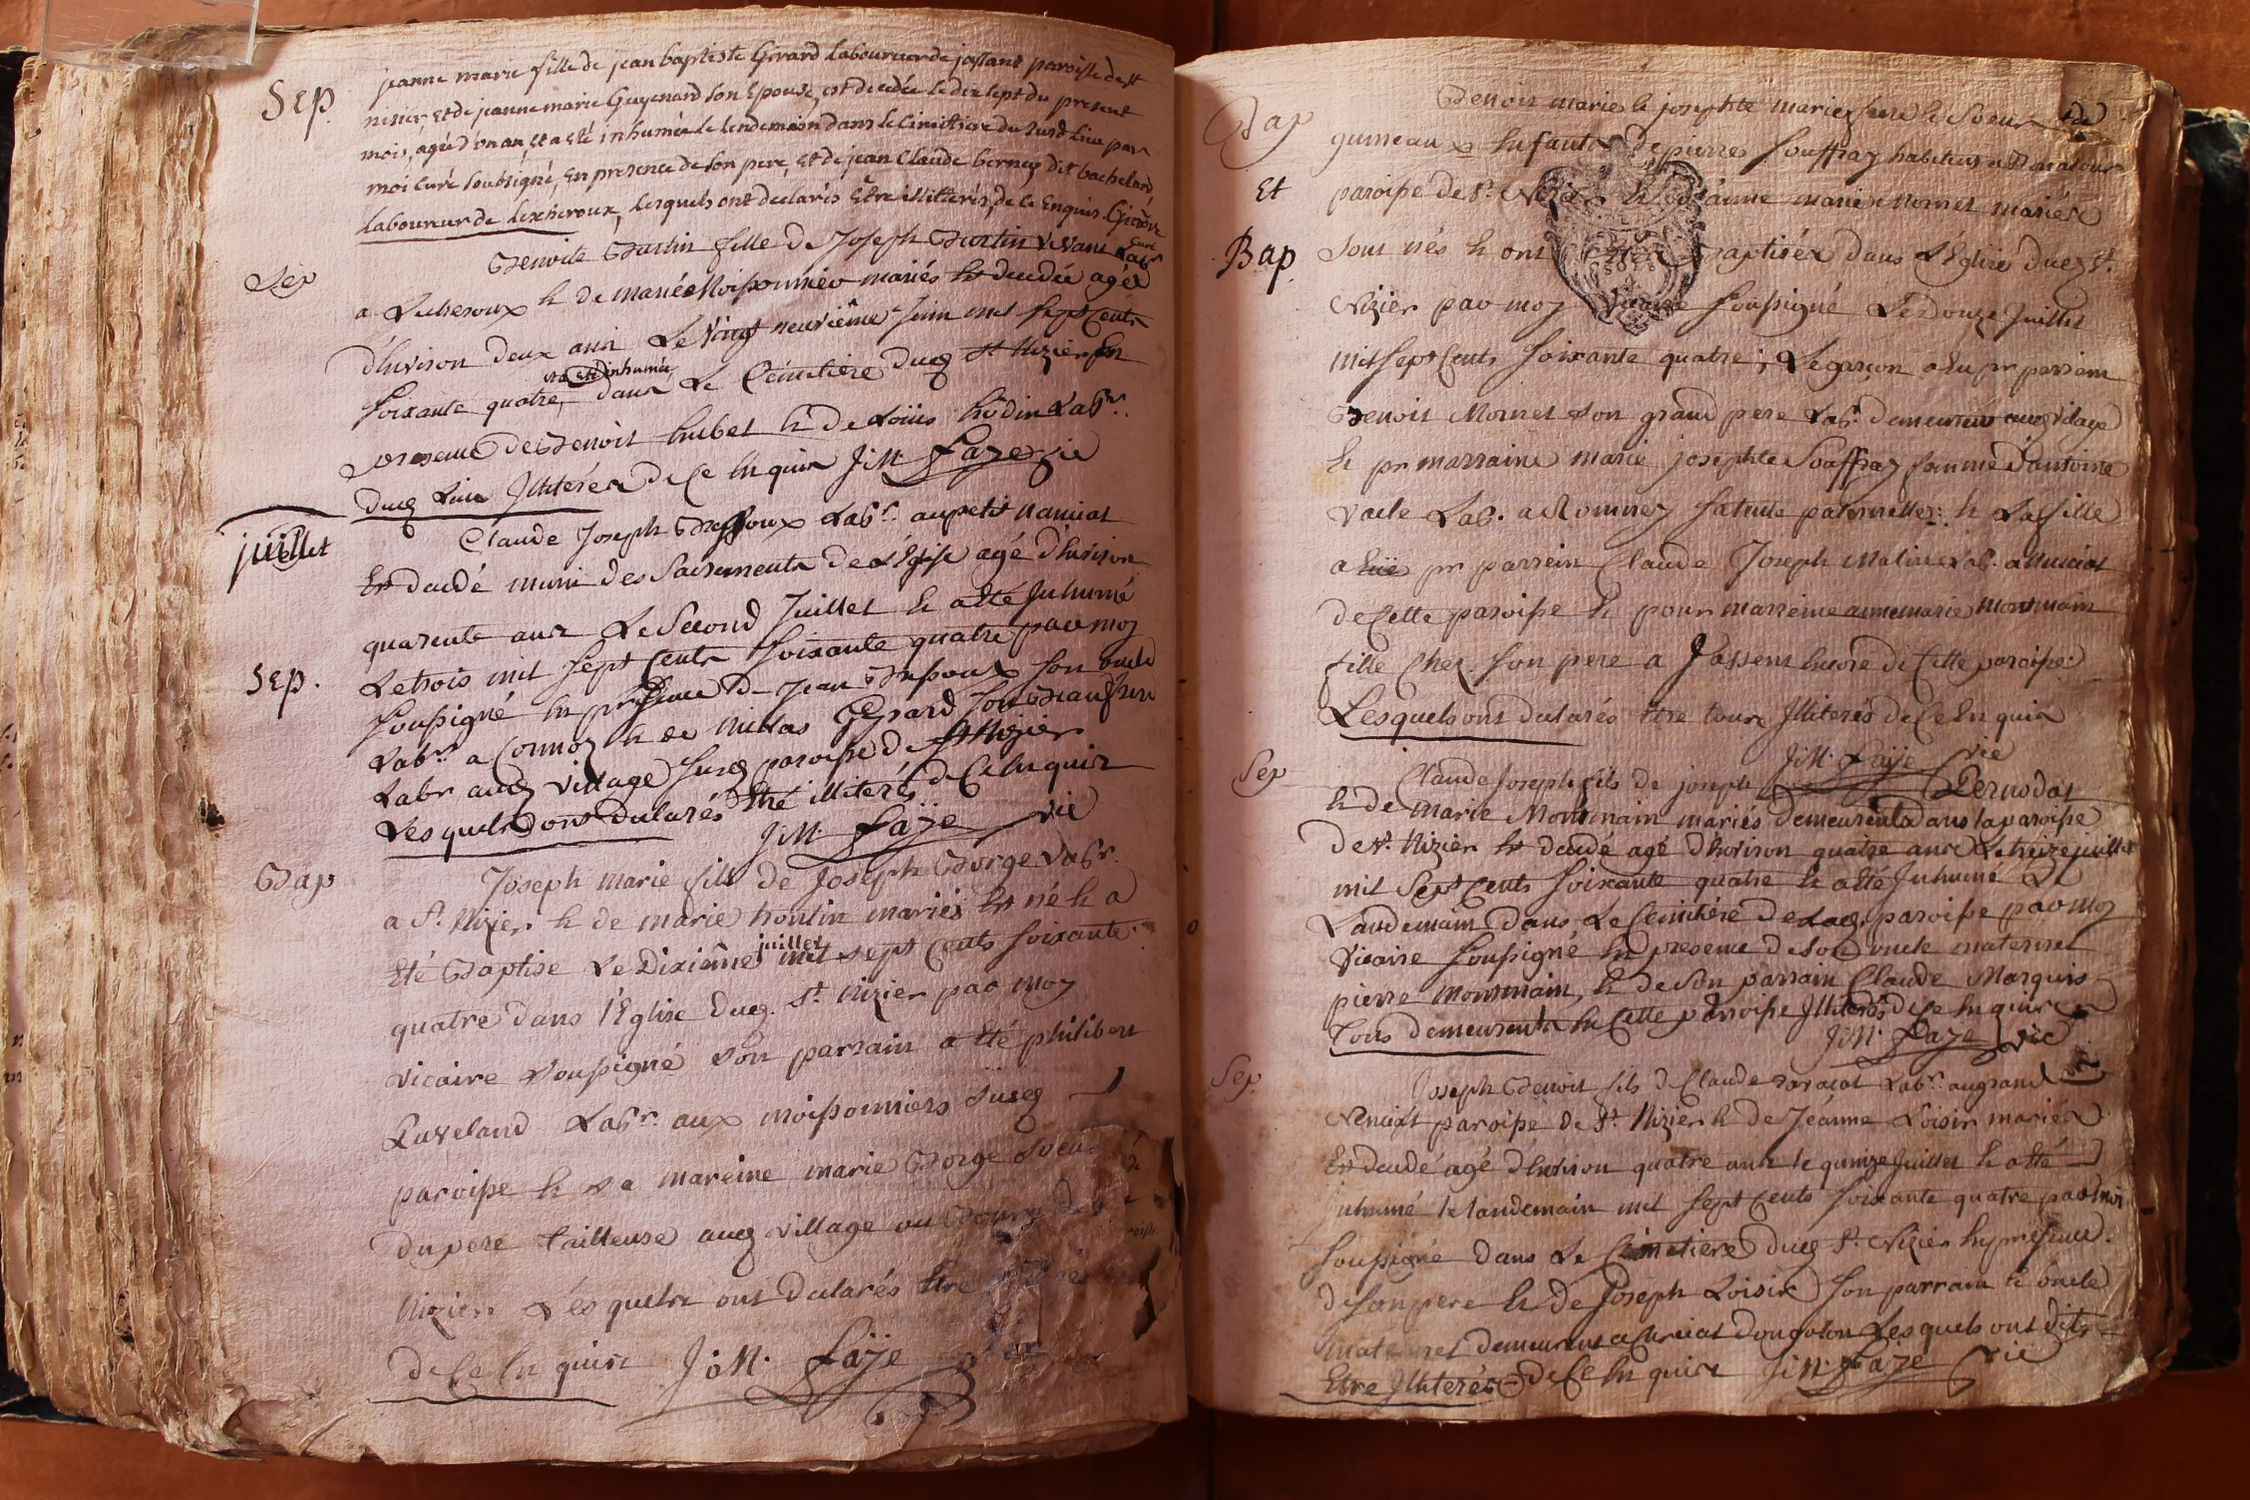 Sep. jeanne marie fille de jean baptiste Girard Laboureur de jassant paroisse de st
nisier et de jeanne marie Guyenard son Epouse, est decedée le dix sept du present
mois, agée d'un an, et a eté inhumée le lendemain dans le cimetiere du susd lieu par
moi curé soussigné, en presence de son pere, et de jean claude bernez dit bachelard
laboureur de lexheroux, lesquels ont declarés Etre illitterés, de ce enquis. Girod
curé
Sep Benoite fille de Joseph vivant Labr
a Lucheroux & de mariés Est decedée agée
d'Environ deux ans Le Vingt neuvième Juin mil sept Cents
soixante quatre, et a eté inhumée dans Le Cémetière dud St Nizier En
presence de Benoit hubet & de Loüis Labr.
dud Lieu Illiterés de Ce Enquis J:M. Faÿe vic
juillet
Claude Joseph Labr. au petit
Sep. Est decedé muni des Sacrements de L'Eglise agé d'Environ
quarente ans Le Second Juillet & a eté Inhumé
Le trois mil sept Cents soixante quatre par moy
soussigné En présence de Jean son oncle
Labr. a Cormoz & de Nicolas Gérard son Beaufrere
Labr aud village susd paroisse de St Nizier
Les quels ont declarés Etre illiterés de Ce Enquis
J:M. Faÿe vic
Bap Joseph marie fils de Joseph Borge Labr.
a St. Nizier & de marie mariés Est né & a
Eté Baptise Le Dixiême juillet mil sept Cents soixante
quatre dans l'Eglise dud. St. Nizier par moy
vicaire Soussigné Son parrain a Eté philibert
Labr. aux moissonniers susd
paroisse & Sa mareine marie Borge Soeur
du pere tailleuse aud village ou Bourg
Nizier Lesquels ont declarés Etre
de Ce Enquis J:M. Faÿe
Bap Benoit marie & josephte marie frere & Soeur
gumeaux Enfants de pierre Souffray habitens
Et paroisse de St. Nizier & de Jeanne marie Mornet mariés
Bap. Sont nés & ont Eté Baptisés dans L'Eglise dud St.
Nizier par moy vicaire soussigné Le Douze Juillet
mil sept Cents soixante quatre; Le garçon a Eu pr parrain
Benoit Mornet son grand pere Labr. demeurant aud vilage
& pr marraine marie josephte Souffray femme d'antoine
Labr. a Romney sa tente paternelle; & La fille
a Eüe pr parrein Claude Joseph Labr. a
de Cette paroisse & pour marreine annemarie montmain
fille Chez son pere a Jassens Encore de Cette paroisse:
Lesquels ont declarés Etre tous Illiterés de Ce Enquis
J:M. Faÿe vic
Sep Claude Joseph fils de joseph Pernodat
& de marie Montmain mariés demeurents dans la paroisse
de St. Nizier Est decedé agé d'Environ quatre ans Le treize juillet
mil Sept Cents soixante quatre & a eté Inhumé Le
Landemain dans Le Cemitére de Lad. paroisse par moy
Vicaire soussigné En presence de son oncle maternel
pierre montmain, & de son parrain Claude Marquis
Tous demeurents En Cette paroisse Illiterés de Ce Enquis
J:M. Faÿe vic
Sep. Joseph Benoit fils de Claude Labr. au grand
paroisse de St. Nizier & de Jéanne Loisir mariés
Est decedé agé d'Environ quatre ans le quinze Juillet & a eté
inhumé le landemain mil sept Cents soixante quatre par moi
soussigné dans Le Cimetiere dud St. Nizier En présence
de son pere & de Joseph Loisir son parrain & oncle
maternel demeurent a Lesquels ont dits
Etre Illiterés de Ce Enquis J:M. Faÿe vic